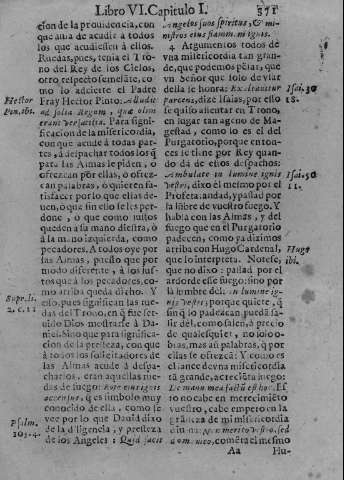 Libro VI. Capitulo I. 371
cion de la prouidencia, con
que auia de acudir à todos
los que acudiessen à ellos.
Ruedas, pues, tenia el Tro-
no del Rey de los Cielos,
por respecto semejãte, co-
mo lo advierte el Padre
Fray Hector Pinto:
ad solia Regum, quæ olim
erant versatilia. Para signi-
ficacion de la misericordia,
con que acude à todas par-
tes, à despachar todos los q̃
para las Almas le piden, o
ofrezcan por ellas, o ofrez-
can palabras, ò quieren sa-
tisfacer por lo que ellas de-
uen, ò que sin esso se les per-
done, o que como justos
queden à su mano diestra, ò
à la mano izquierda, como
pecadores. A todos oye por
las Almas, puesto que por
modo diferente, à los jus-
tos que à los pecadores, co-
mo arriba queda dicho. Y
esso, pues significan las rue-
das del Trono, en q̃ fue ser-
uido Dios mostrarse à Da-
niel. Sino que para significa-
cion de la presteza, con que
à todos los solicitadores de
las Almas acude à despa-
charlos, eran aquellas rue-
das de fuego: Rote eius ignis
accensus, q̃ es simbolo muy
conocido de ella, como se
vee por lo que Dauid dixo
de la diligencia, y presteza
de los Angeles: Qui facit
Hector
Pin. ibi.
Supr. li.
2. c. 11
Psalm.
103. 4.
Angelos suos spiritus, & mi-
nistros eius flammam ignis.
4 Argumentos todos de
vna misericordia tan gran-
de, que podemos pẽsar, que
vn Señor que solo de vsar
della se honra: Exaltabitur
parcens, dize Isaias, por esso
se quiso assentar en Trono,
en lugar tan ageno de Ma-
gestad, como lo es el del
Purgatorio, porque enton-
ces se tiene por Rey quan-
do dà de ellos despachos:
Ambulate in lumine ignis
vestri, dixo el mesmo por el
Profeta: andad, y passad por
la lũbre de vuestro fuego. Y
habla con las Almas, y del
fuego que en el Purgatorio
padecen, como ya diximos
arriba con Hugo Cardenal,
que lo interpreta. Notese,
que no dixo: passad por el
ardor de esse fuego: sino por
la lumbre del. In lumine ig-
nis vestri; porque quiere, q̃
sin q̃ lo padezcan, pueda sa-
lir del, como salen, à precio
de qualesquier, no solo o-
bras, mas aũ palabras, q̃ por
ellas se ofrezcã: Y como es
el lance de vna misericordia
tã grande, acreciẽta luego:
De manu mea factũ est hoc. Es-
to no cabe en merecimiẽto
vuestro, cabe empero en la
grãdeza de mi misericordia
diuina. Non merito vestro, sed
dono meo, comẽta el mesmo
Isai. 30
18.
Isai. 50
11.
Hugo
ibi.
Aa Hu-